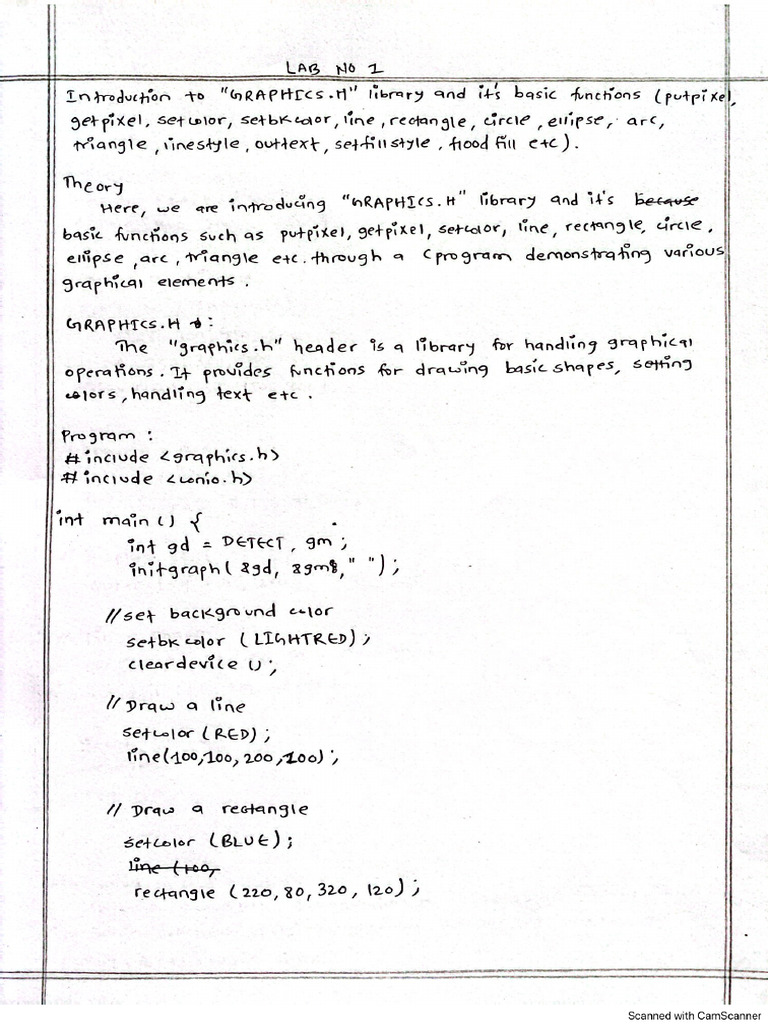 LAB NO 1
Introduction to "GRAPHICS.H" library and it's basic functions (putpixel,
getpixel, setcolor, setbkcolor, line, rectangle, circle, ellipse, arc,
triangle, linestyle, outtext, setfillstyle, flood fill etc).
Theory
Here, we are introducing "GRAPHICS.H" library and it's because
basic functions such as putpixel, getpixel, setcolor, line, rectangle, circle,
ellipse, arc, triangle etc. through a C program demonstrating various
graphical elements.
GRAPHICS.H :
The "graphics.h" header is a library for handling graphical
operations. It provides functions for drawing basic shapes, setting
colors, handling text etc.
Program :
#include <graphics.h>
#include <conio.h>
int main() {
int gd = DETECT, gm;
initgraph( &gd, &gm, " ");
//set background color
setbkcolor (LIGHTRED);
cleardevice ();
// Draw a line
setcolor (RED);
line(100,100,200,100);
// Draw a rectangle
setcolor (BLUE);
line (100,
rectangle (220, 80, 320, 120);
Scanned with CamScanner